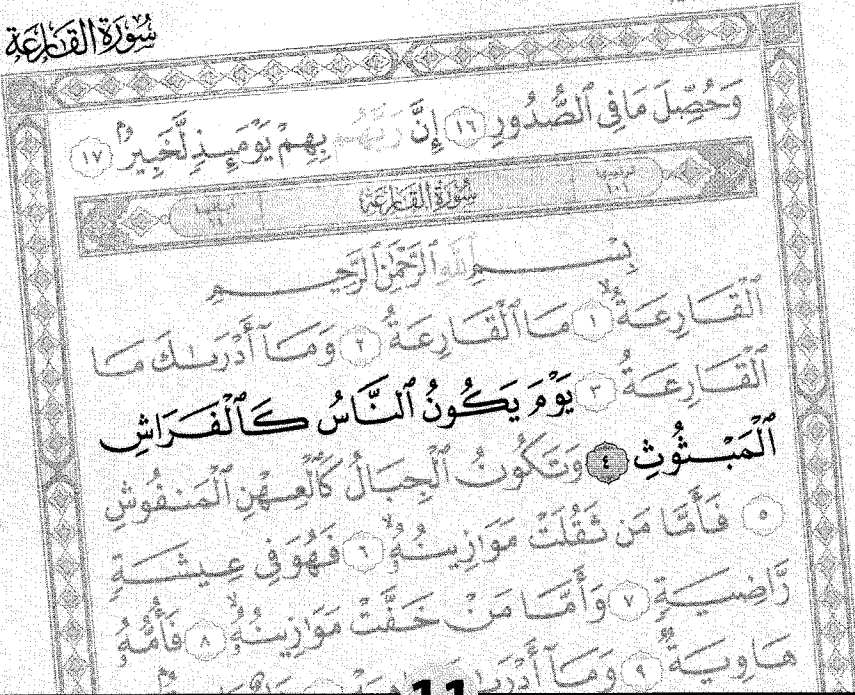 سُورَةُ القَارِعَةِ
وَحُصِّلَ مَا فِى ٱلصُّدُورِ ١٦ إِنَّ رَبَّهُم بِهِمْ يَوْمَئِذٍ لَّخَبِيرٌۢ ١٧
ترتيبها ١٠١ سُورَةُ القَارِعَةِ آياتها ١١
بِسْمِ ٱللَّهِ ٱلرَّحْمَٰنِ ٱلرَّحِيمِ
ٱلْقَارِعَةُ ١ مَا ٱلْقَارِعَةُ ٢ وَمَآ أَدْرَىٰكَ مَا
ٱلْقَارِعَةُ ٣ يَوْمَ يَكُونُ ٱلنَّاسُ كَٱلْفَرَاشِ
ٱلْمَبْثُوثِ ٤ وَتَكُونُ ٱلْجِبَالُ كَٱلْعِهْنِ ٱلْمَنفُوشِ
٥ فَأَمَّا مَن ثَقُلَتْ مَوَٰزِينُهُۥ ٦ فَهُوَ فِى عِيشَةٍ
رَّاضِيَةٍ ٧ وَأَمَّا مَنْ خَفَّتْ مَوَٰزِينُهُۥ ٨ فَأُمُّهُۥ
هَاوِيَةٌ ٩ وَمَآ أَدْرَىٰكَ
11